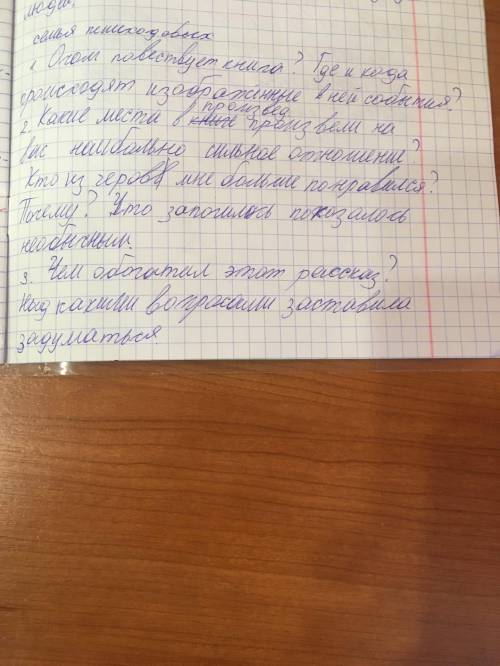 люди.
семья пешеходовых
1. О ком повествует книга? Где и кода
происходят изображенные в ней события?
2. Какие места в книге произвед. произвели на
Вас наибально сильное отношение?
Кто из геров мне больше понравился?
Почему? Что запомнилось показалось
необычным.
3. Чем обогатил этот рассказ?
Над какими вопросами заставила
задуматься.